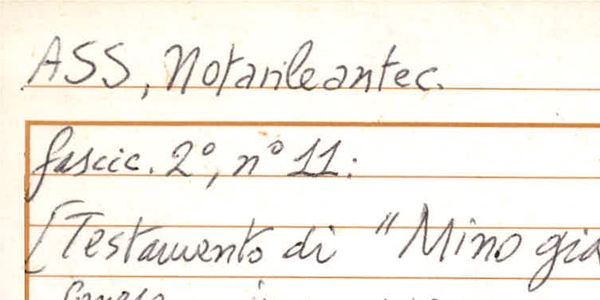 ASS, Notarile antec.
fascic. 2°, n° 11:
[Testamento di "Mino gia